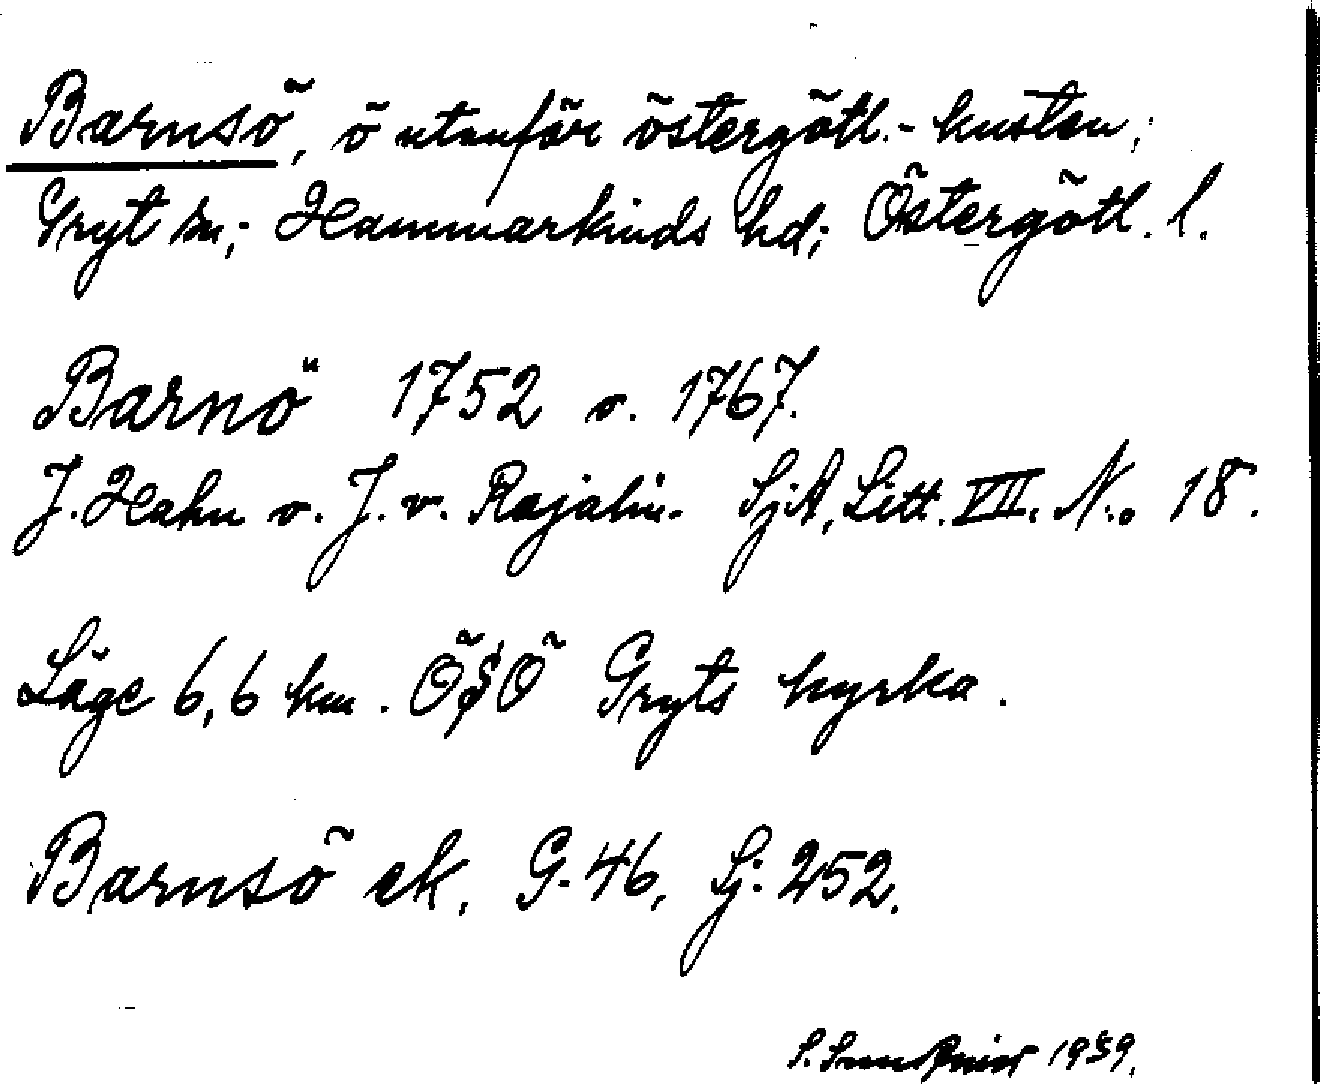 Barnsö, ö utanför östergötl.-kusten;
Gryt sn; Hammarkinds hd; Östergötl. l.
Barnö 1752 o. 1767.
J. Hahn o. J. v. Rajalin. SjA, Litt. VII. N:o 18.
Läge 6,6 km. ÖSÖ Gryts kyrka.
Barnsö ek. G. 46, Sj. 252.
S. 1939.